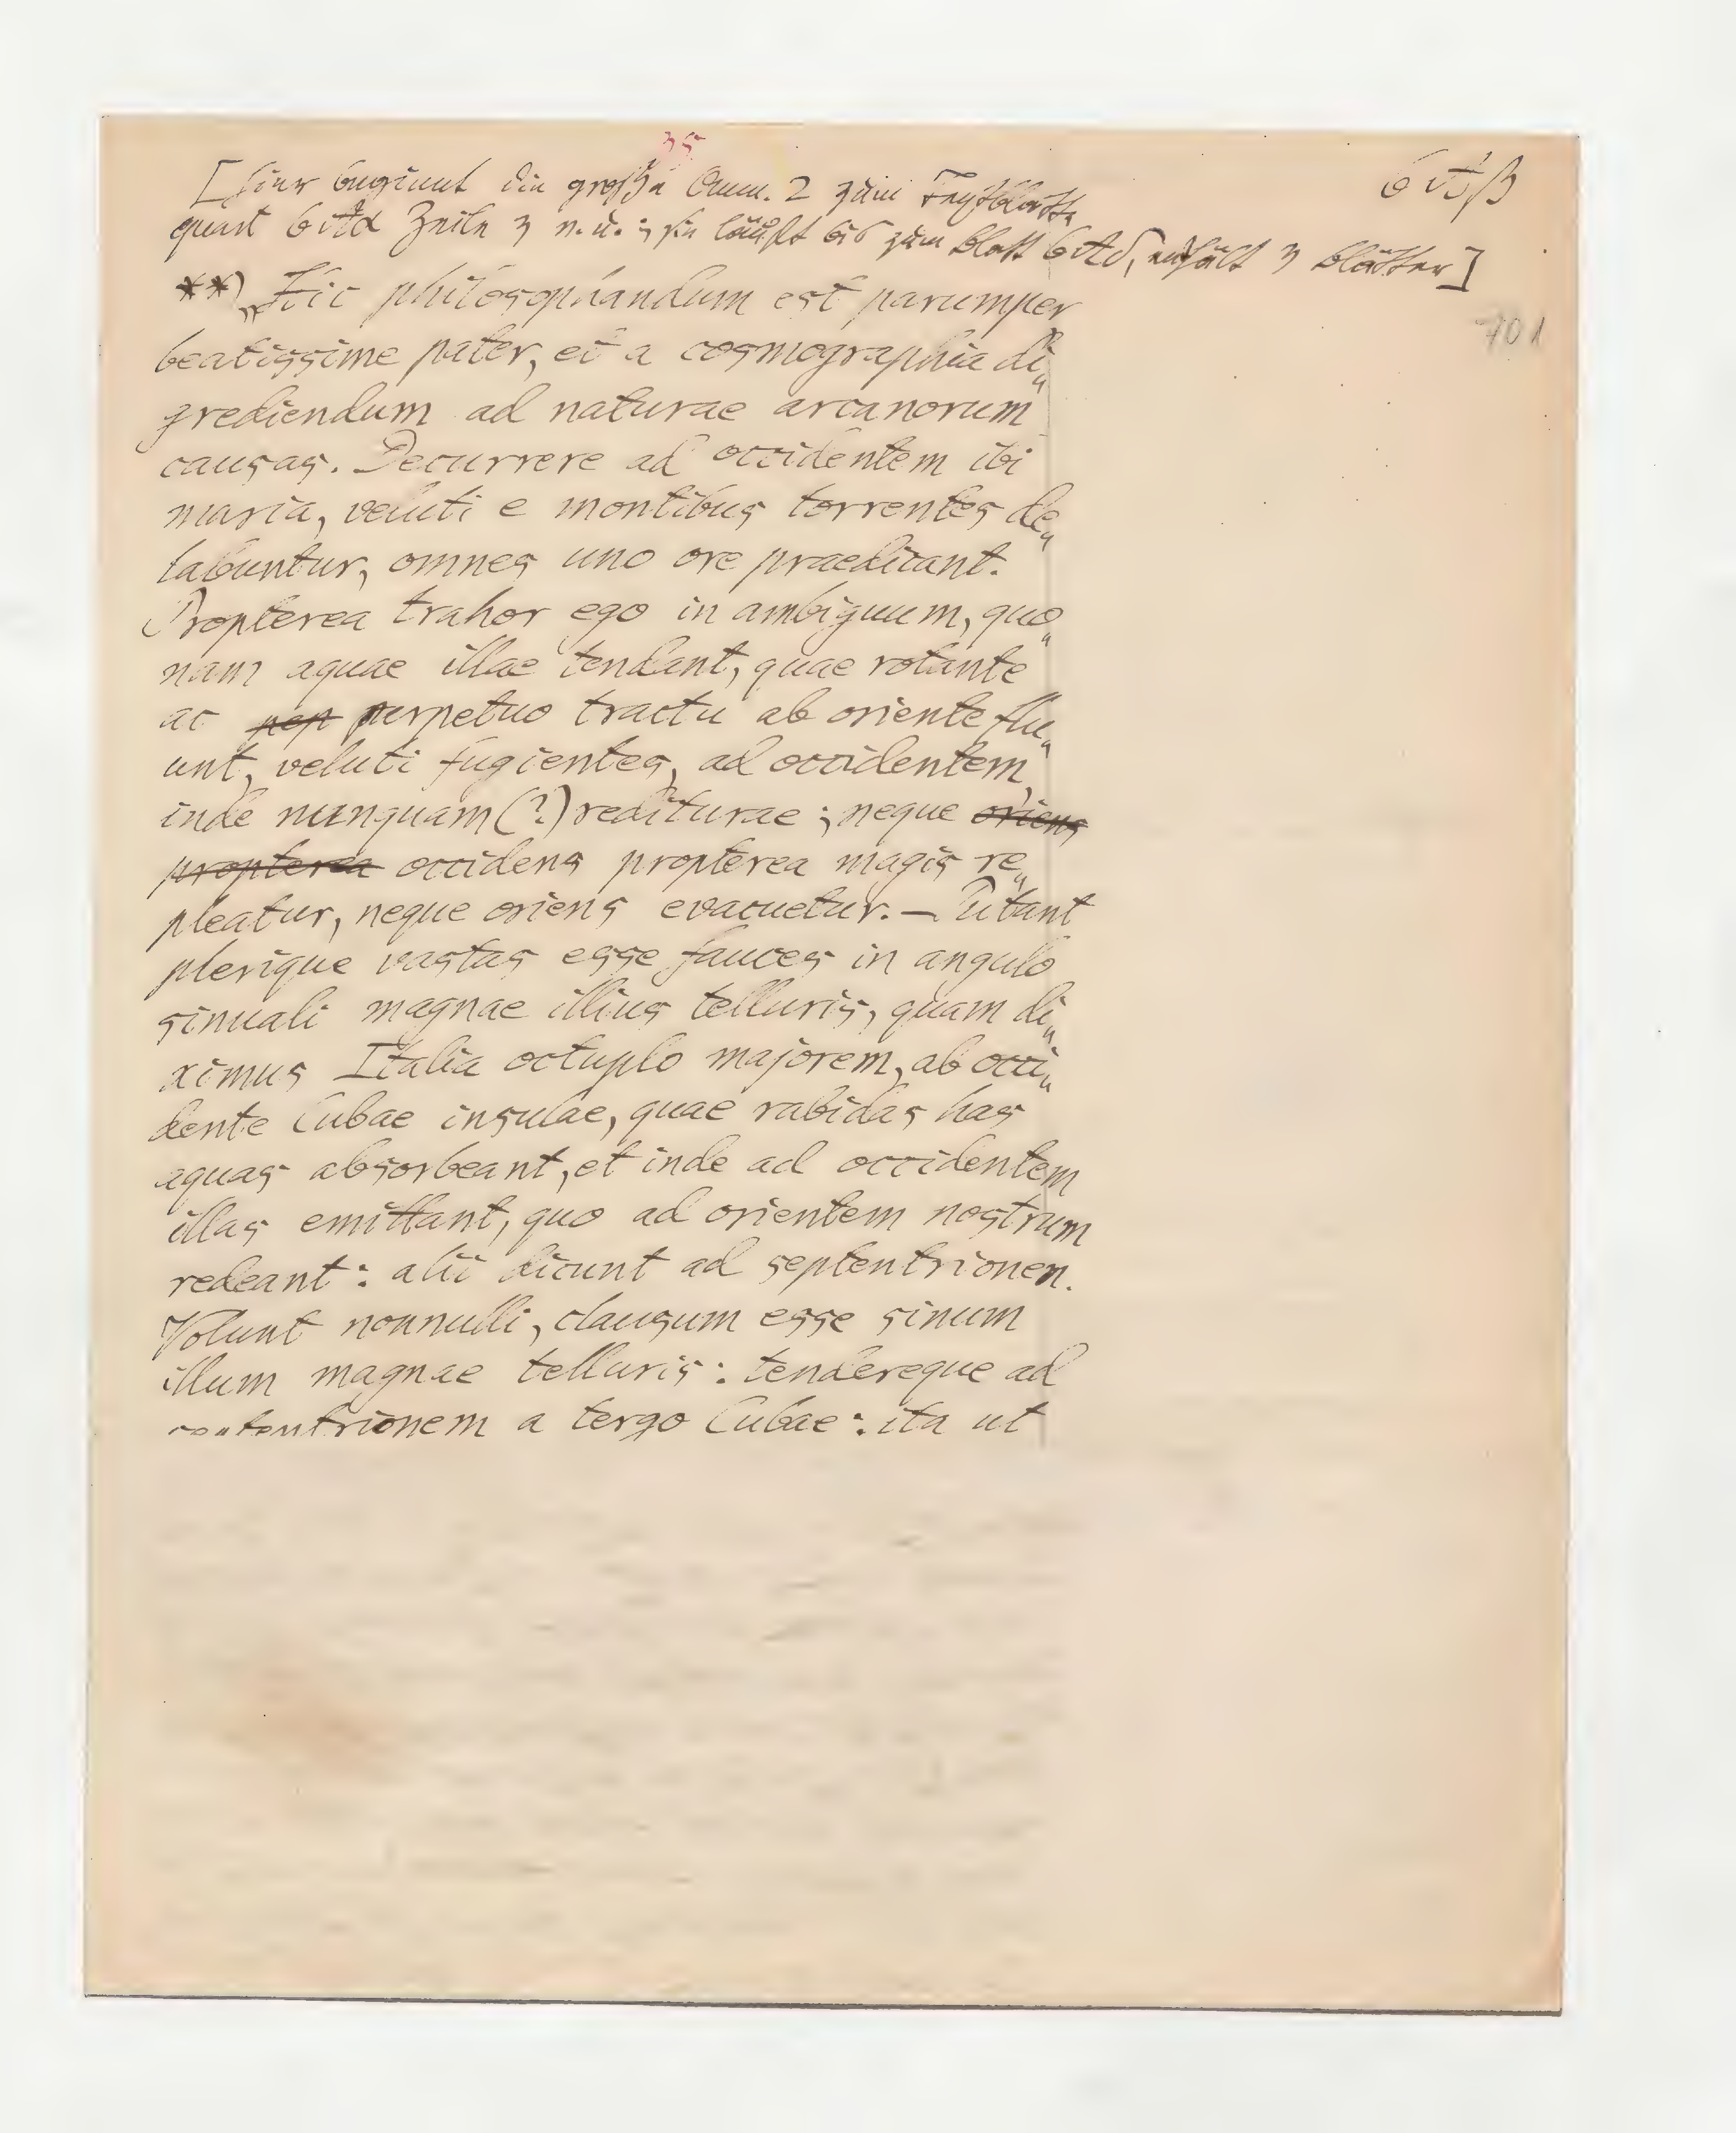 35
[Hier beginnt die große Anm. 2 zum Textblatte
6 β
Zeile 3 v. u. ; sie läuft bis zum Blatt enthält 3 Blätter]
**) „Hic philosophandum est parumper
701
beatissime pater, et a cosmographia di„
grediendum ad naturae arcanorum
causas. Decurrere ad occidentem ibi
maria, veluti e montibus torrentes de„
labuntur, omnes uno ore praedicant.
Propterea trahor ego in ambiguum, quo„
nam aquae illae tendant, quae rotante
ac pep perpetuo tractu ab oriente flu„
unt, veluti fugientes, ad occidentem,
inde nunquam (?) rediturae ; neque oriens
propterea occidens propterea magis re„
pleatur, neque oriens evacuetur. — Putant
plerique vastas esse fauces in angulo
sinuali magnae illius telluris, quam di„
ximus Italia octuplo majorem, ab occi„
dente Cubae insulae, quae rabidas has
aquas absorbeant, et inde ad occidentem
illas emittant, quo ad orientem nostrum
redeant : alii dicunt ad septentrionem.
Volunt nonnulli, clausum esse sinum
illum magnae telluris : tendereque ad
septentrionem a tergo Cubae : ita ut